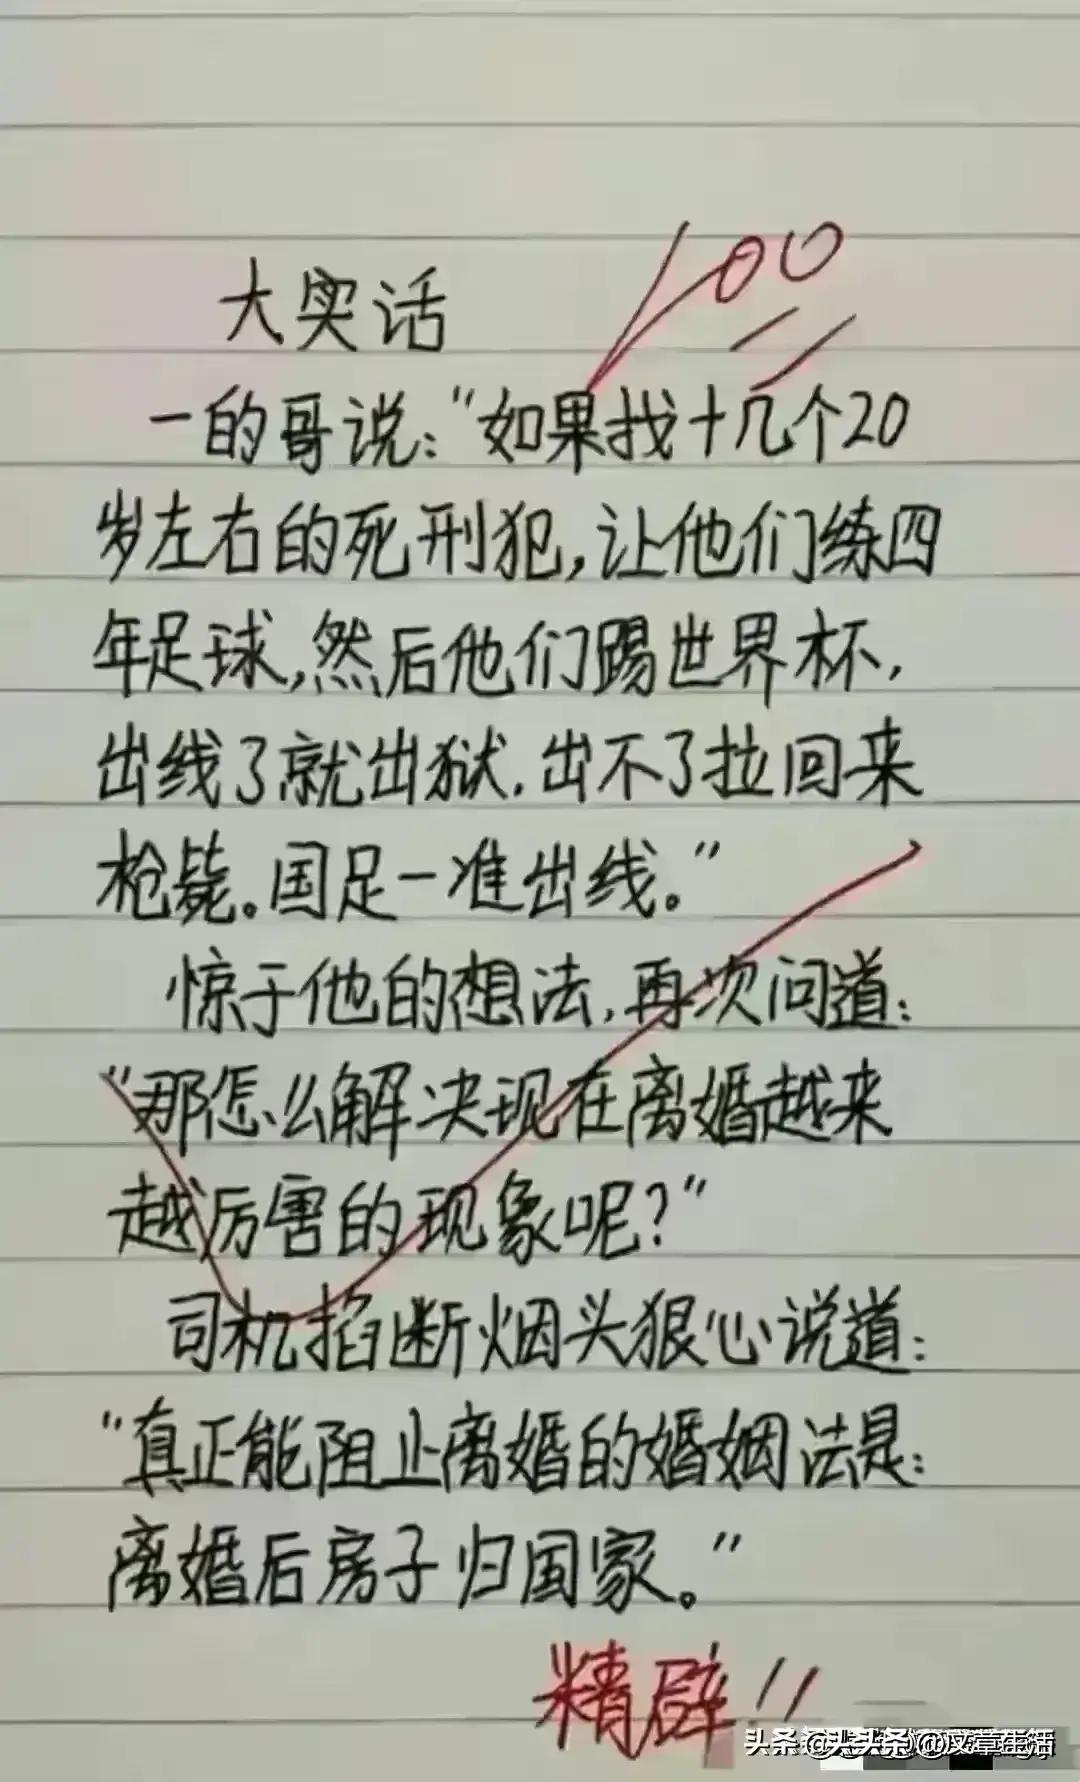 大实话
100
一的哥说:“如果找十几个20
岁左右的死刑犯,让他们练四
年足球,然后他们踢世界杯,
出线了就出狱.出不了拉回来
枪毙。国足一准出线。”
惊于他的想法,再次问道:
“那怎么解决现在离婚越来
越厉害的现象呢?”
司机掐断烟头狠心说道:
“真正能阻止离婚的婚姻法是:
离婚后房子归国家。”
精辟!!
头条@头头条@
生活